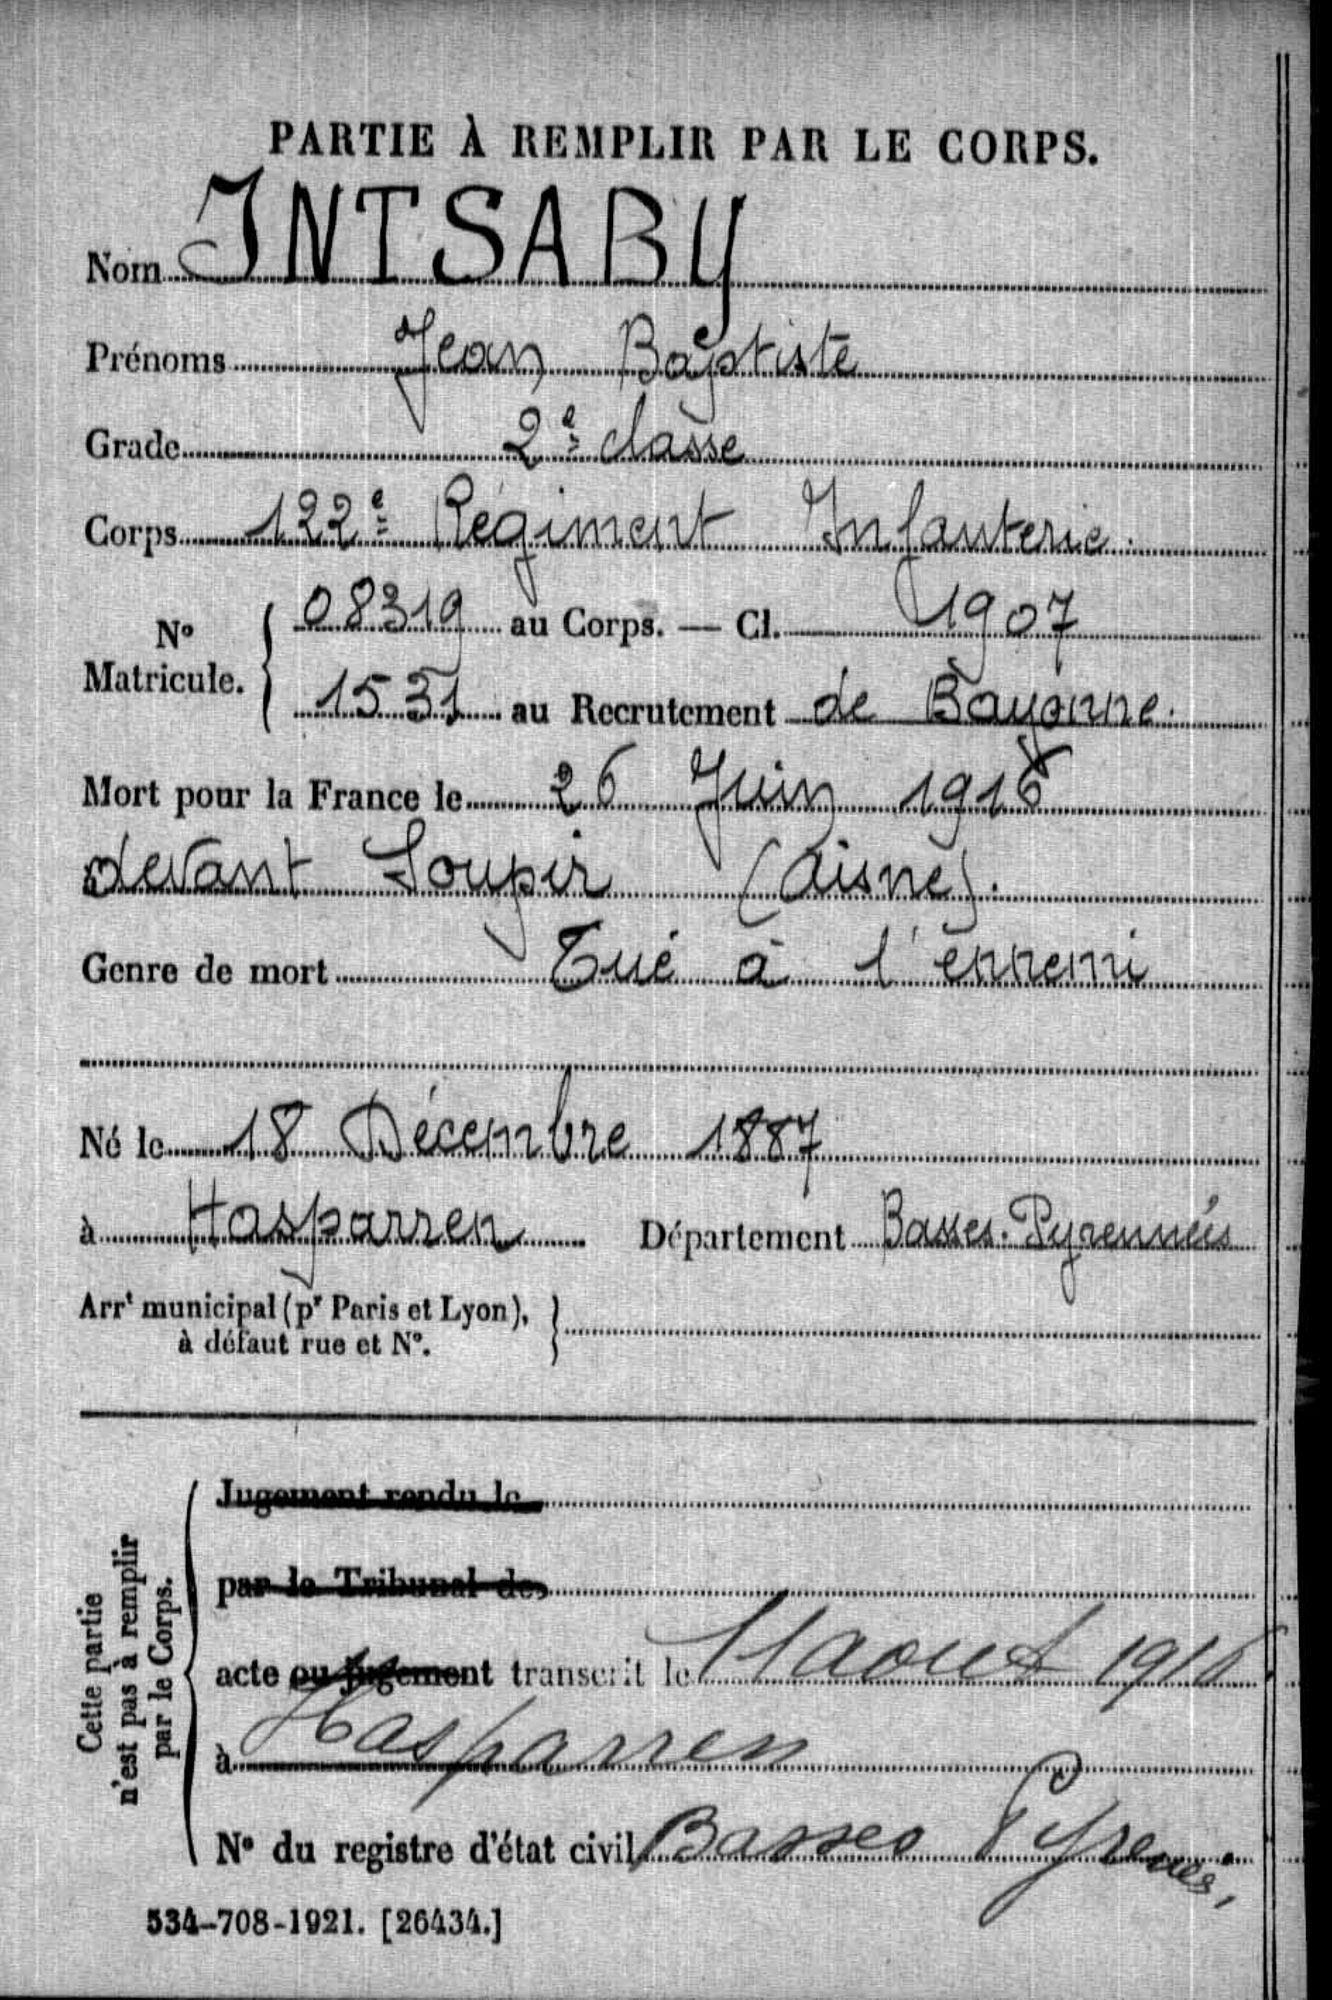 PARTIE À REMPLIR PAR LE CORPS.
Nom INTSABY
Prénoms Jean Baptiste
Grade 2e classe
Corps 122e Régiment Infanterie.
No Matricule. { 08319 au Corps. — Cl. 1907
1531 au Recrutement de Bayonne.
Mort pour la France le 26 Juin 1916
devant Soupir (Aisne).
Genre de mort Tué à l'ennemi
Né le 18 Décembre 1887
à Hasparren Département Basses-Pyrennées
Arrt municipal (pr Paris et Lyon),
à défaut rue et No.
Cette partie
n'est pas à remplir
par le Corps.
Jugement rendu le
par le Tribunal de
acte ou jugement transcrit le 11 aout 1916
à Hasparren
No du registre d'état civil Basses Pyrenées,
534-708-1921. [26434.]